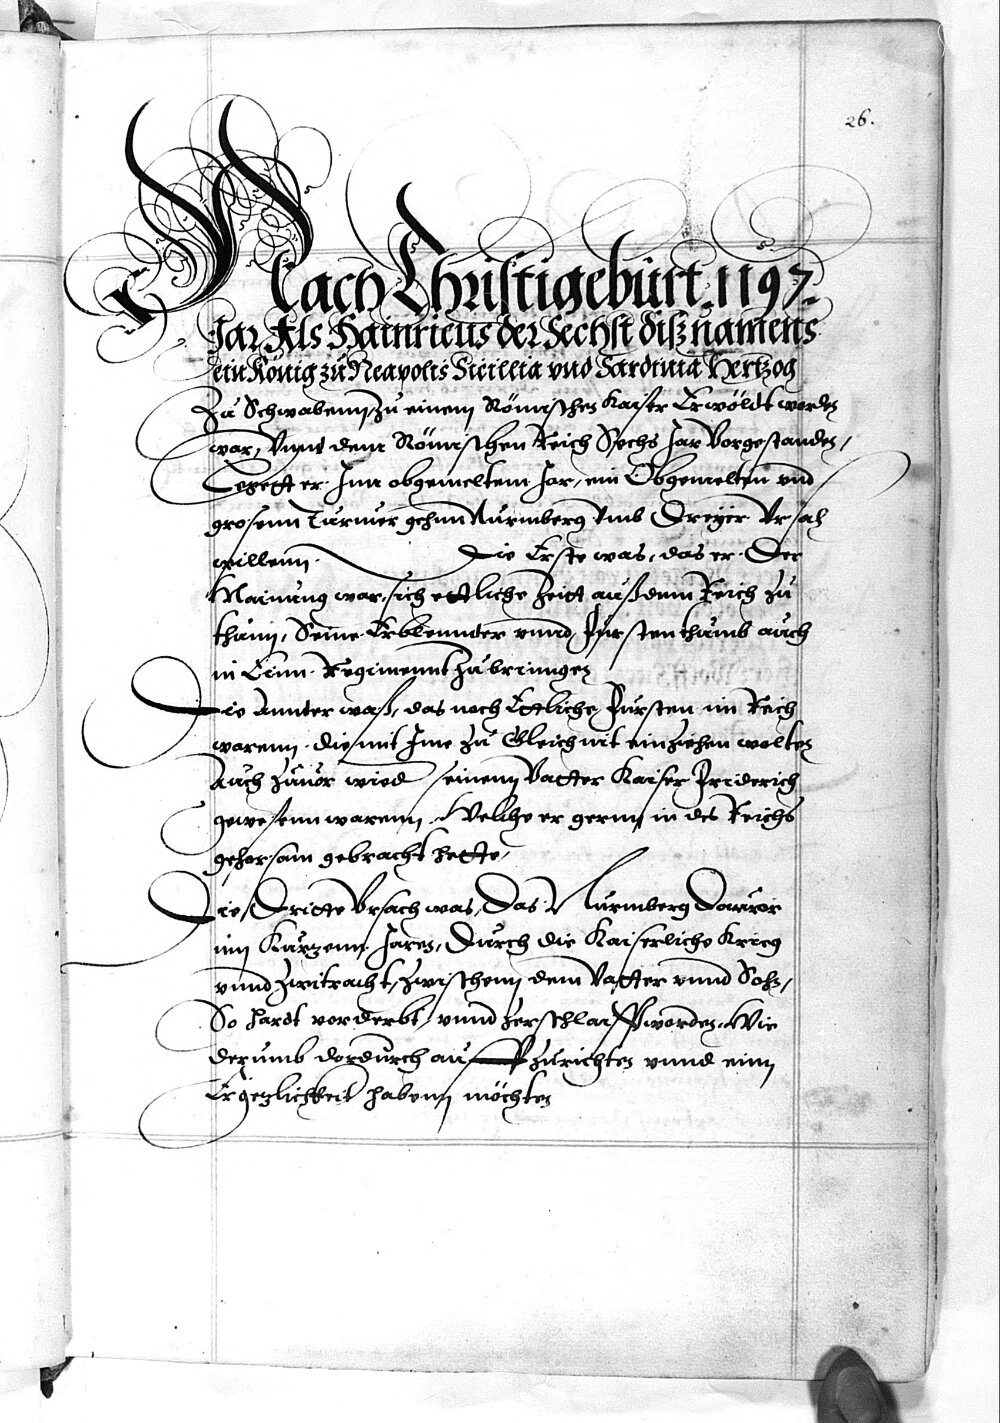 26.
Nach Christi gebürt. 1197.
Jar Als Hainricus der Sechst diß namens
ein König zů Neapolis Sicillia vnd Sardinia Hertzog
Zů Schwabenn, zů einem Römischen Kaiser Erwöldt worden
war, Vnnd dem Römischen Reich Sechs Jar Vorgestanden,
Legett er Jnn obgemeltem Jar, ein Obgemelten vnd
grosenn Turnier gehnn Nurmberg Vmb Dreyer Vrsach
willenn. Die Erste was, das er Der
Mainung war, sich ettliche Zeitt auß dem Reich zů
thůnn, Seine Erblennder vnnd Fürstenthůmb auch
in Einn Regimennt zůbringen
Die Annder waß, das noch Ettliche Fürsten im Reich
warenn die mit Jme zů Gleich nit einziehen wolten
Auch zůuor wied seinem Vatter Kaiser Friderich
gewesenn warenn. Welche er gernn in des Reichs
gehorsam gebracht hette,
Die Dritte Vrsach was, Das Nurmberg Dauuor
inn Kurzenn Jaren, Durch die Kaiserliche Krieg
vnnd Zwitracht, Zwischenn dem Vatter vnnd Sohn,
So hardt verderbt, vnnd zerschlaifft worden, Wie
derumb dardurch auffzurichten vnnd einn
Ergezlichkeit habenn möchten